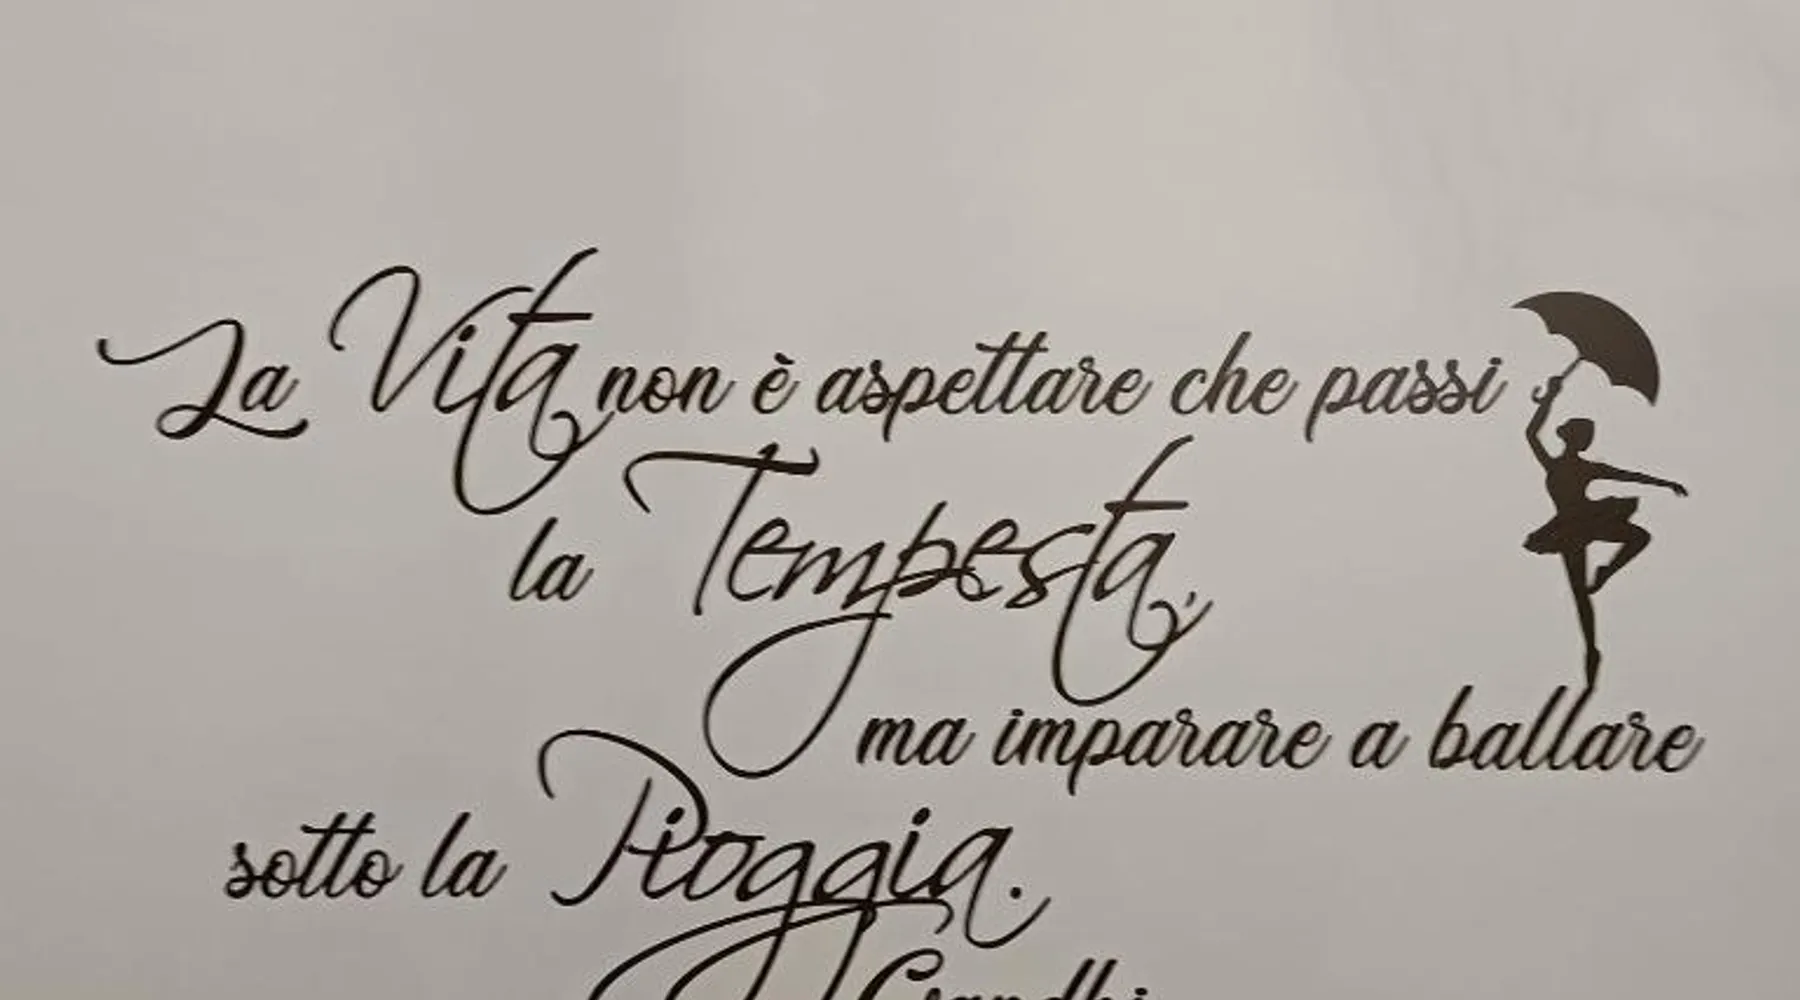 La Vita non è aspettare che passi
la Tempesta,
ma imparare a ballare
sotto la Pioggia.
Gandhi